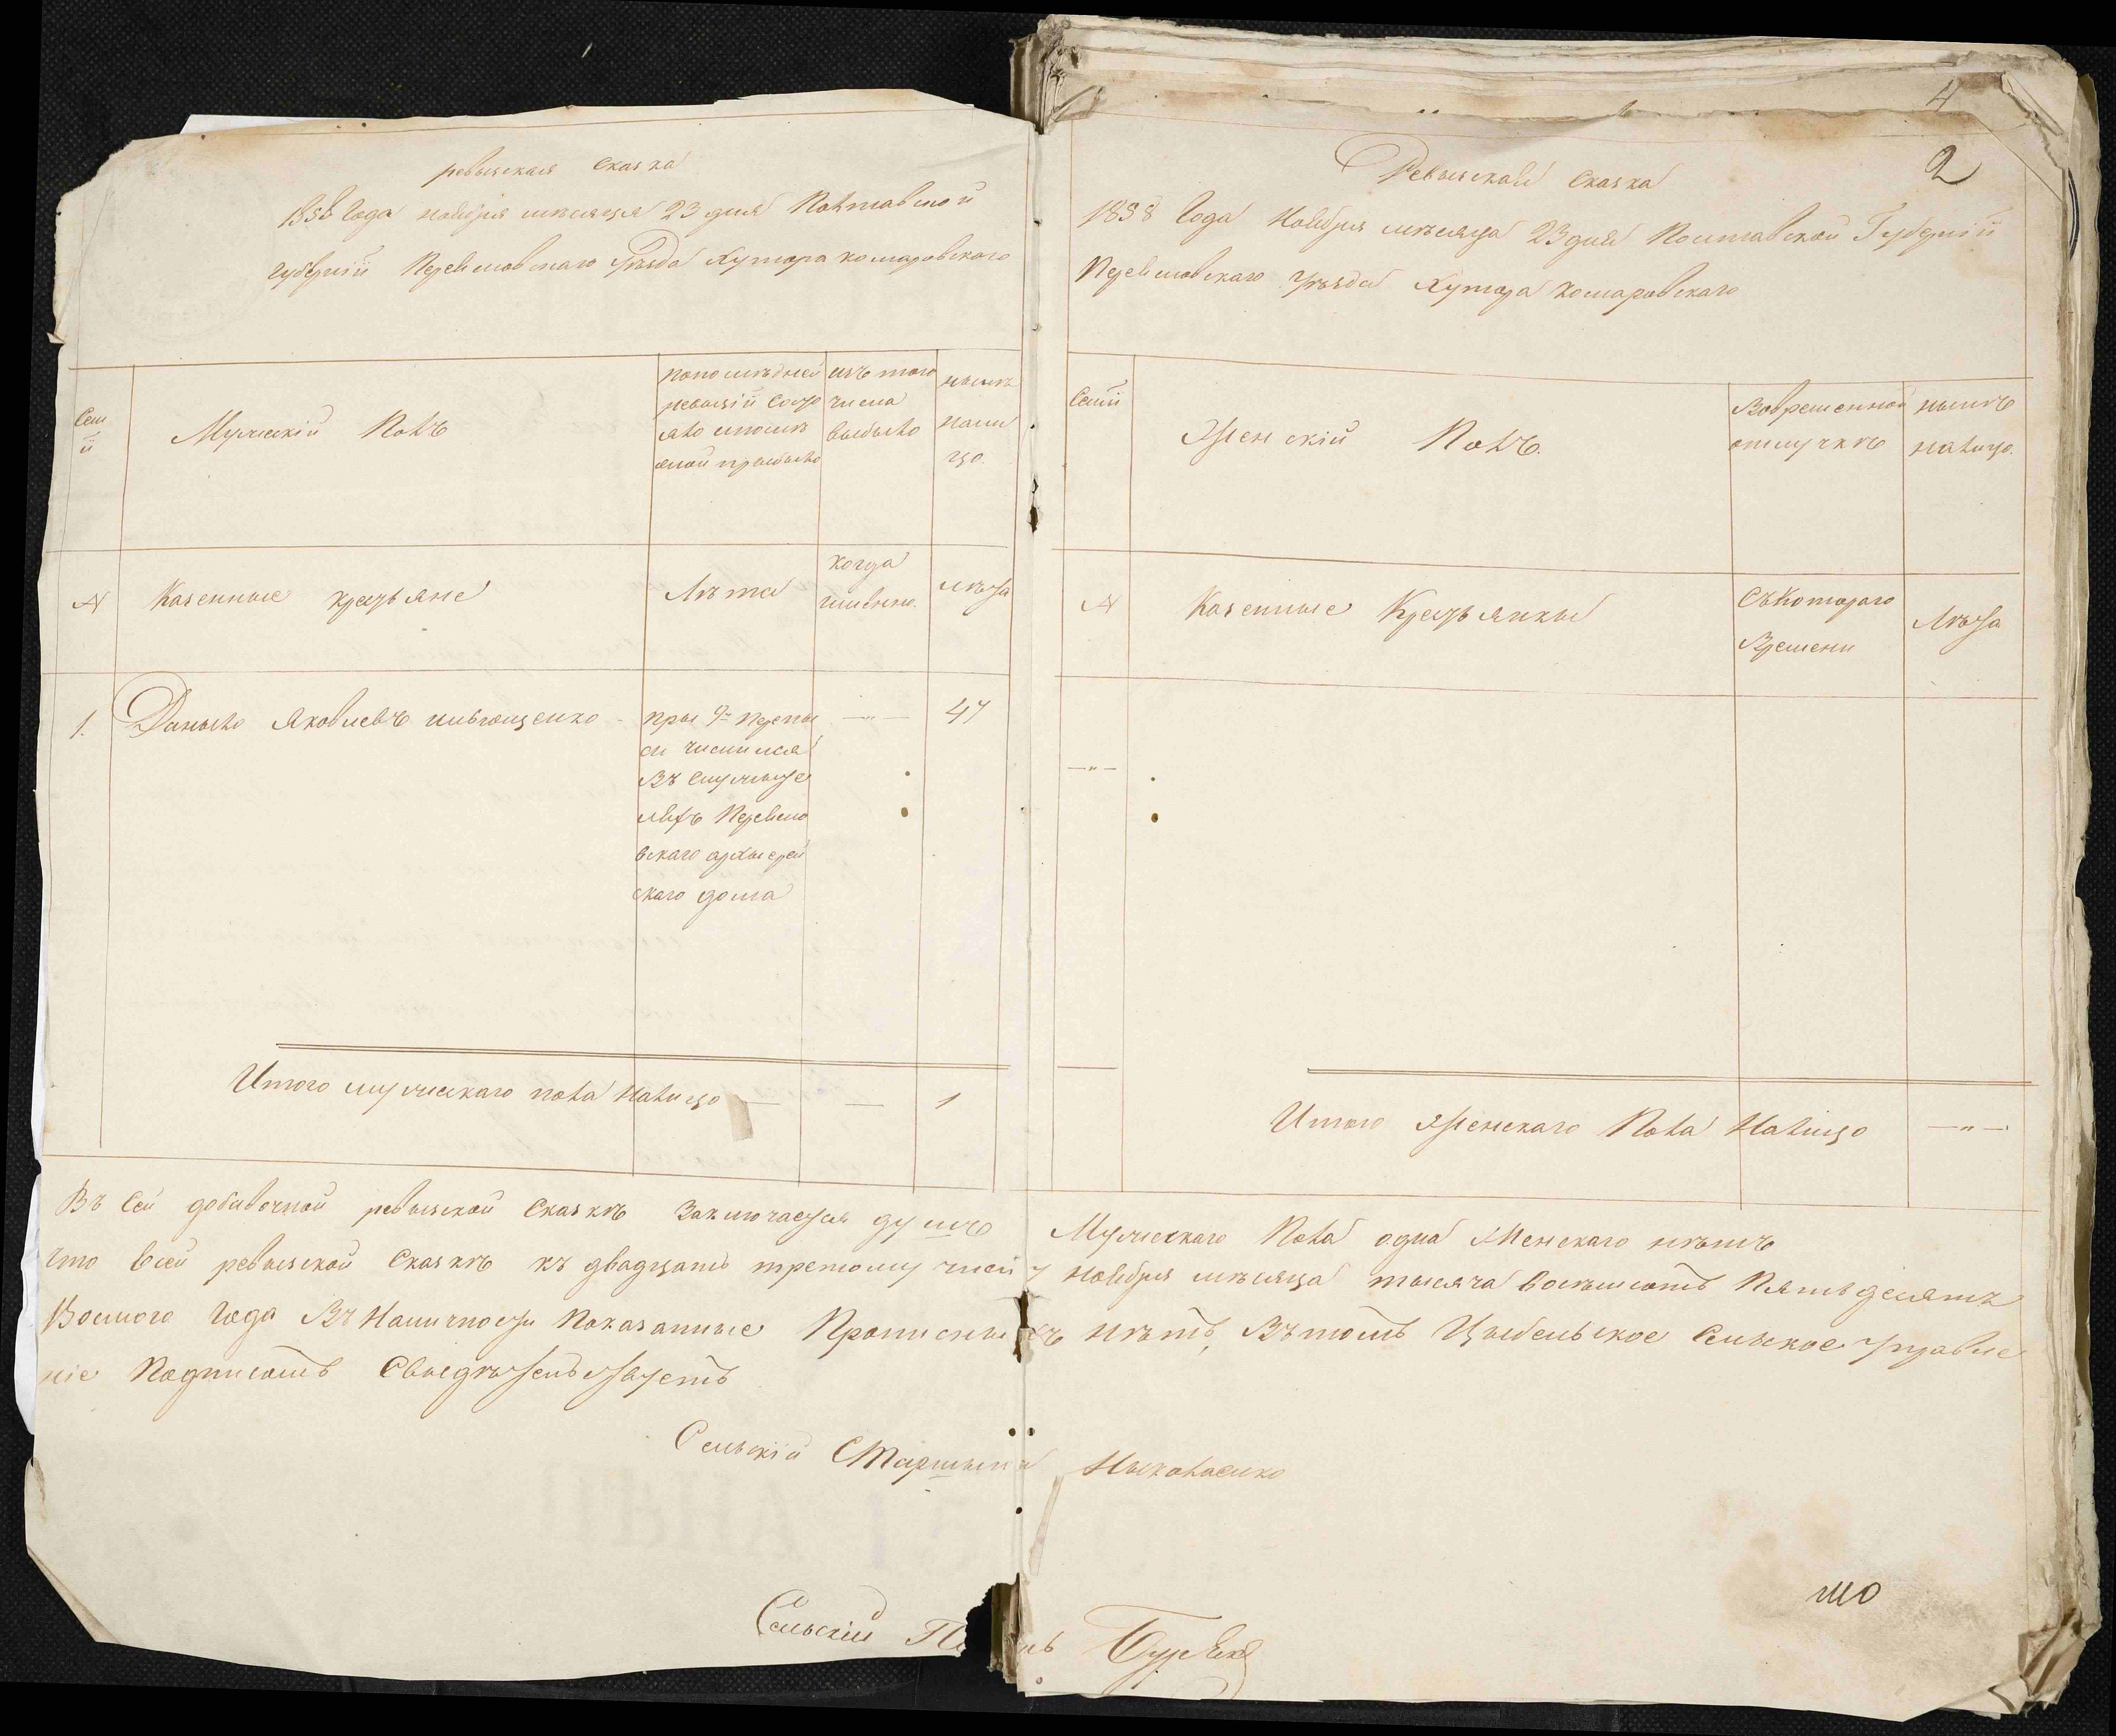 ревызская сказка
1858 Года ноября месяца 23 дня Полтавской
губерніи Переяславскаго Уѣзда Хутора комаровского
Сем
ѣи
Мужескій Полъ
попослѣдней
ревызіи состо
яло ипослѣ
оной прыбыло
изъ того
числа
выбыло
нынѣ
нали
цо.
№
Казенные крестьяне
Лѣта
когда
именно.
Лѣта
1. Даныло Яковлевъ ильющенко
при 9й перепы
си числился
Въ служыте
ляхъ Переясло
вскаго архыерей
скаго дома
—"—
47
Итого мужескаго пола налицо — — 1
4
2
Ревызская Сказка
1858 Года Ноября мѣсяца 23 дня Полтавской Губерніи
Переяславскаго Уѣзда Хутора комаровскаго
Семѣи
Женскій Полъ.
Вовременной
отлучкѣ
нынѣ
налицо.
№
Казенные Крестьянкы
Съкотораго
Времени
Лѣта
—"—
Итого Женскаго Пола Налицо —"—
Въ Сей добавочной ревызской сказкѣ Заключается душъ Мужескаго Пола одна Женскаго нѣтъ
что всей ревызской Сказкѣ къ двадцать третому числу ноября мѣсяца тысяча восемьсотъ Пятьдесятъ
Восмого Года Въ Наличности Показанные Прописныхъ нѣтъ, Въ томъ Цыбельское Сельское Управле
ніе Подписомъ Свыедѣтельствуетъ
Сельскій Старшына Ныколаенко
Сельскій
що